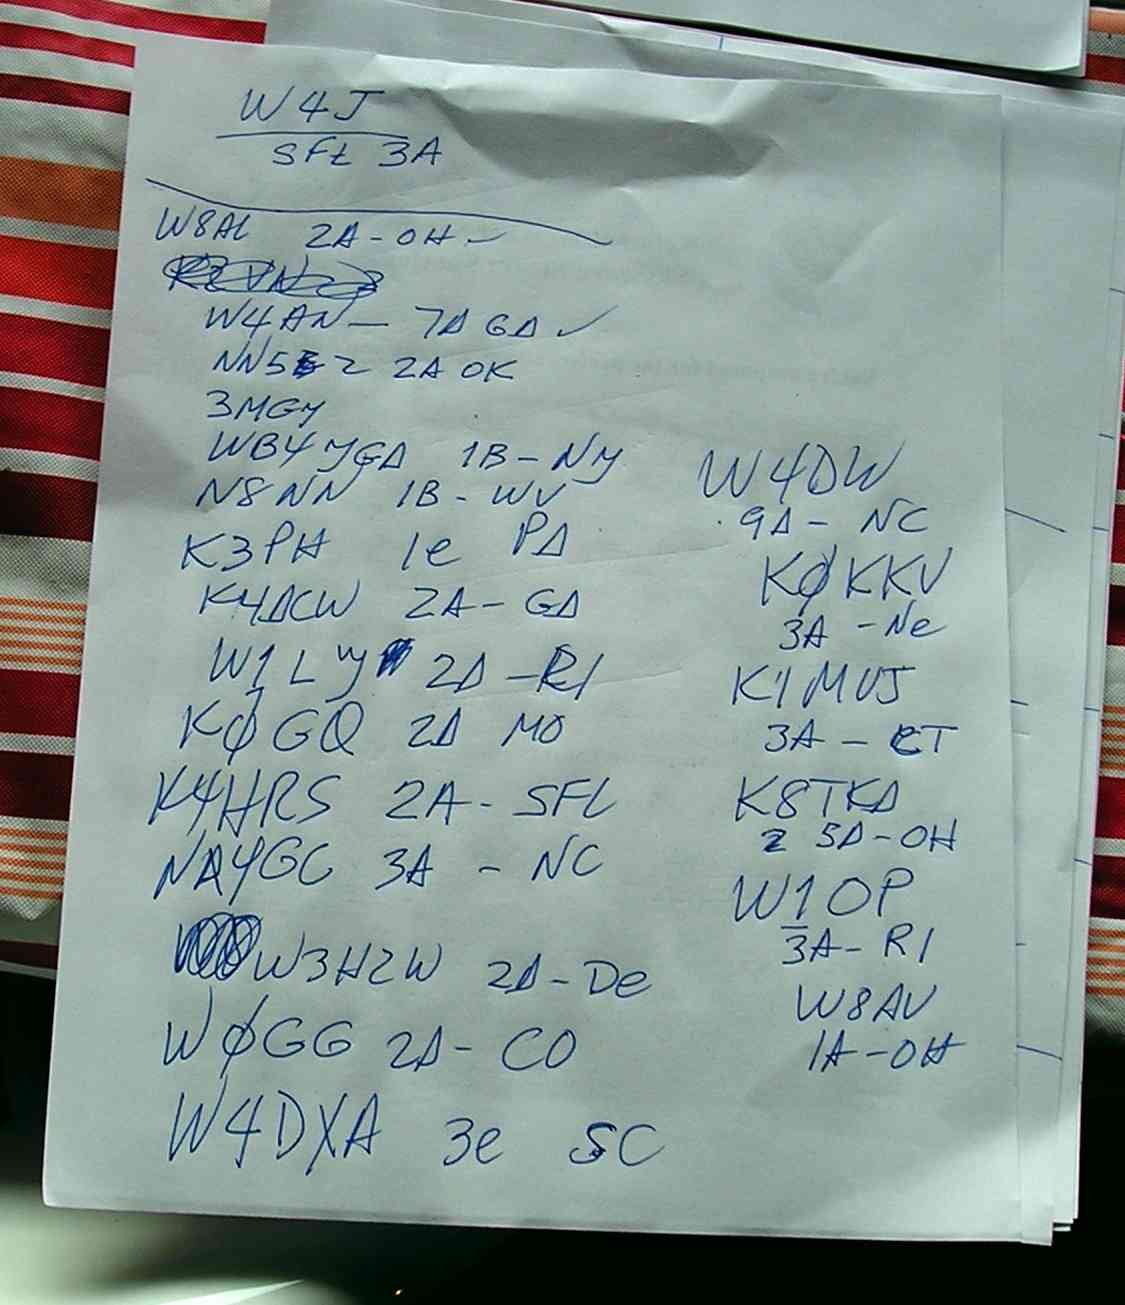 W4J
SFL 3A
W8AL 2A-OH ✓
W4AN - 7A GA ✓
NN5 Z 2A OK
3MGY
WB4YGA 1B-NY
N8NN 1B-WV
K3PH 1e PA
K4ACW 2A-GA
W1LY 2A-RI
KØGQ 2A MO
K4HRS 2A-SFL
NA4GC 3A - NC
W3HZW 2A-De
WØGG 2A-CO
W4DXA 3e SC
W4DW
9A- NC
KØKKV
3A -Ne
K1MUJ
3A - CT
K8TKA
5A-OH
W1OP
3A-RI
W8AV
1A-OH